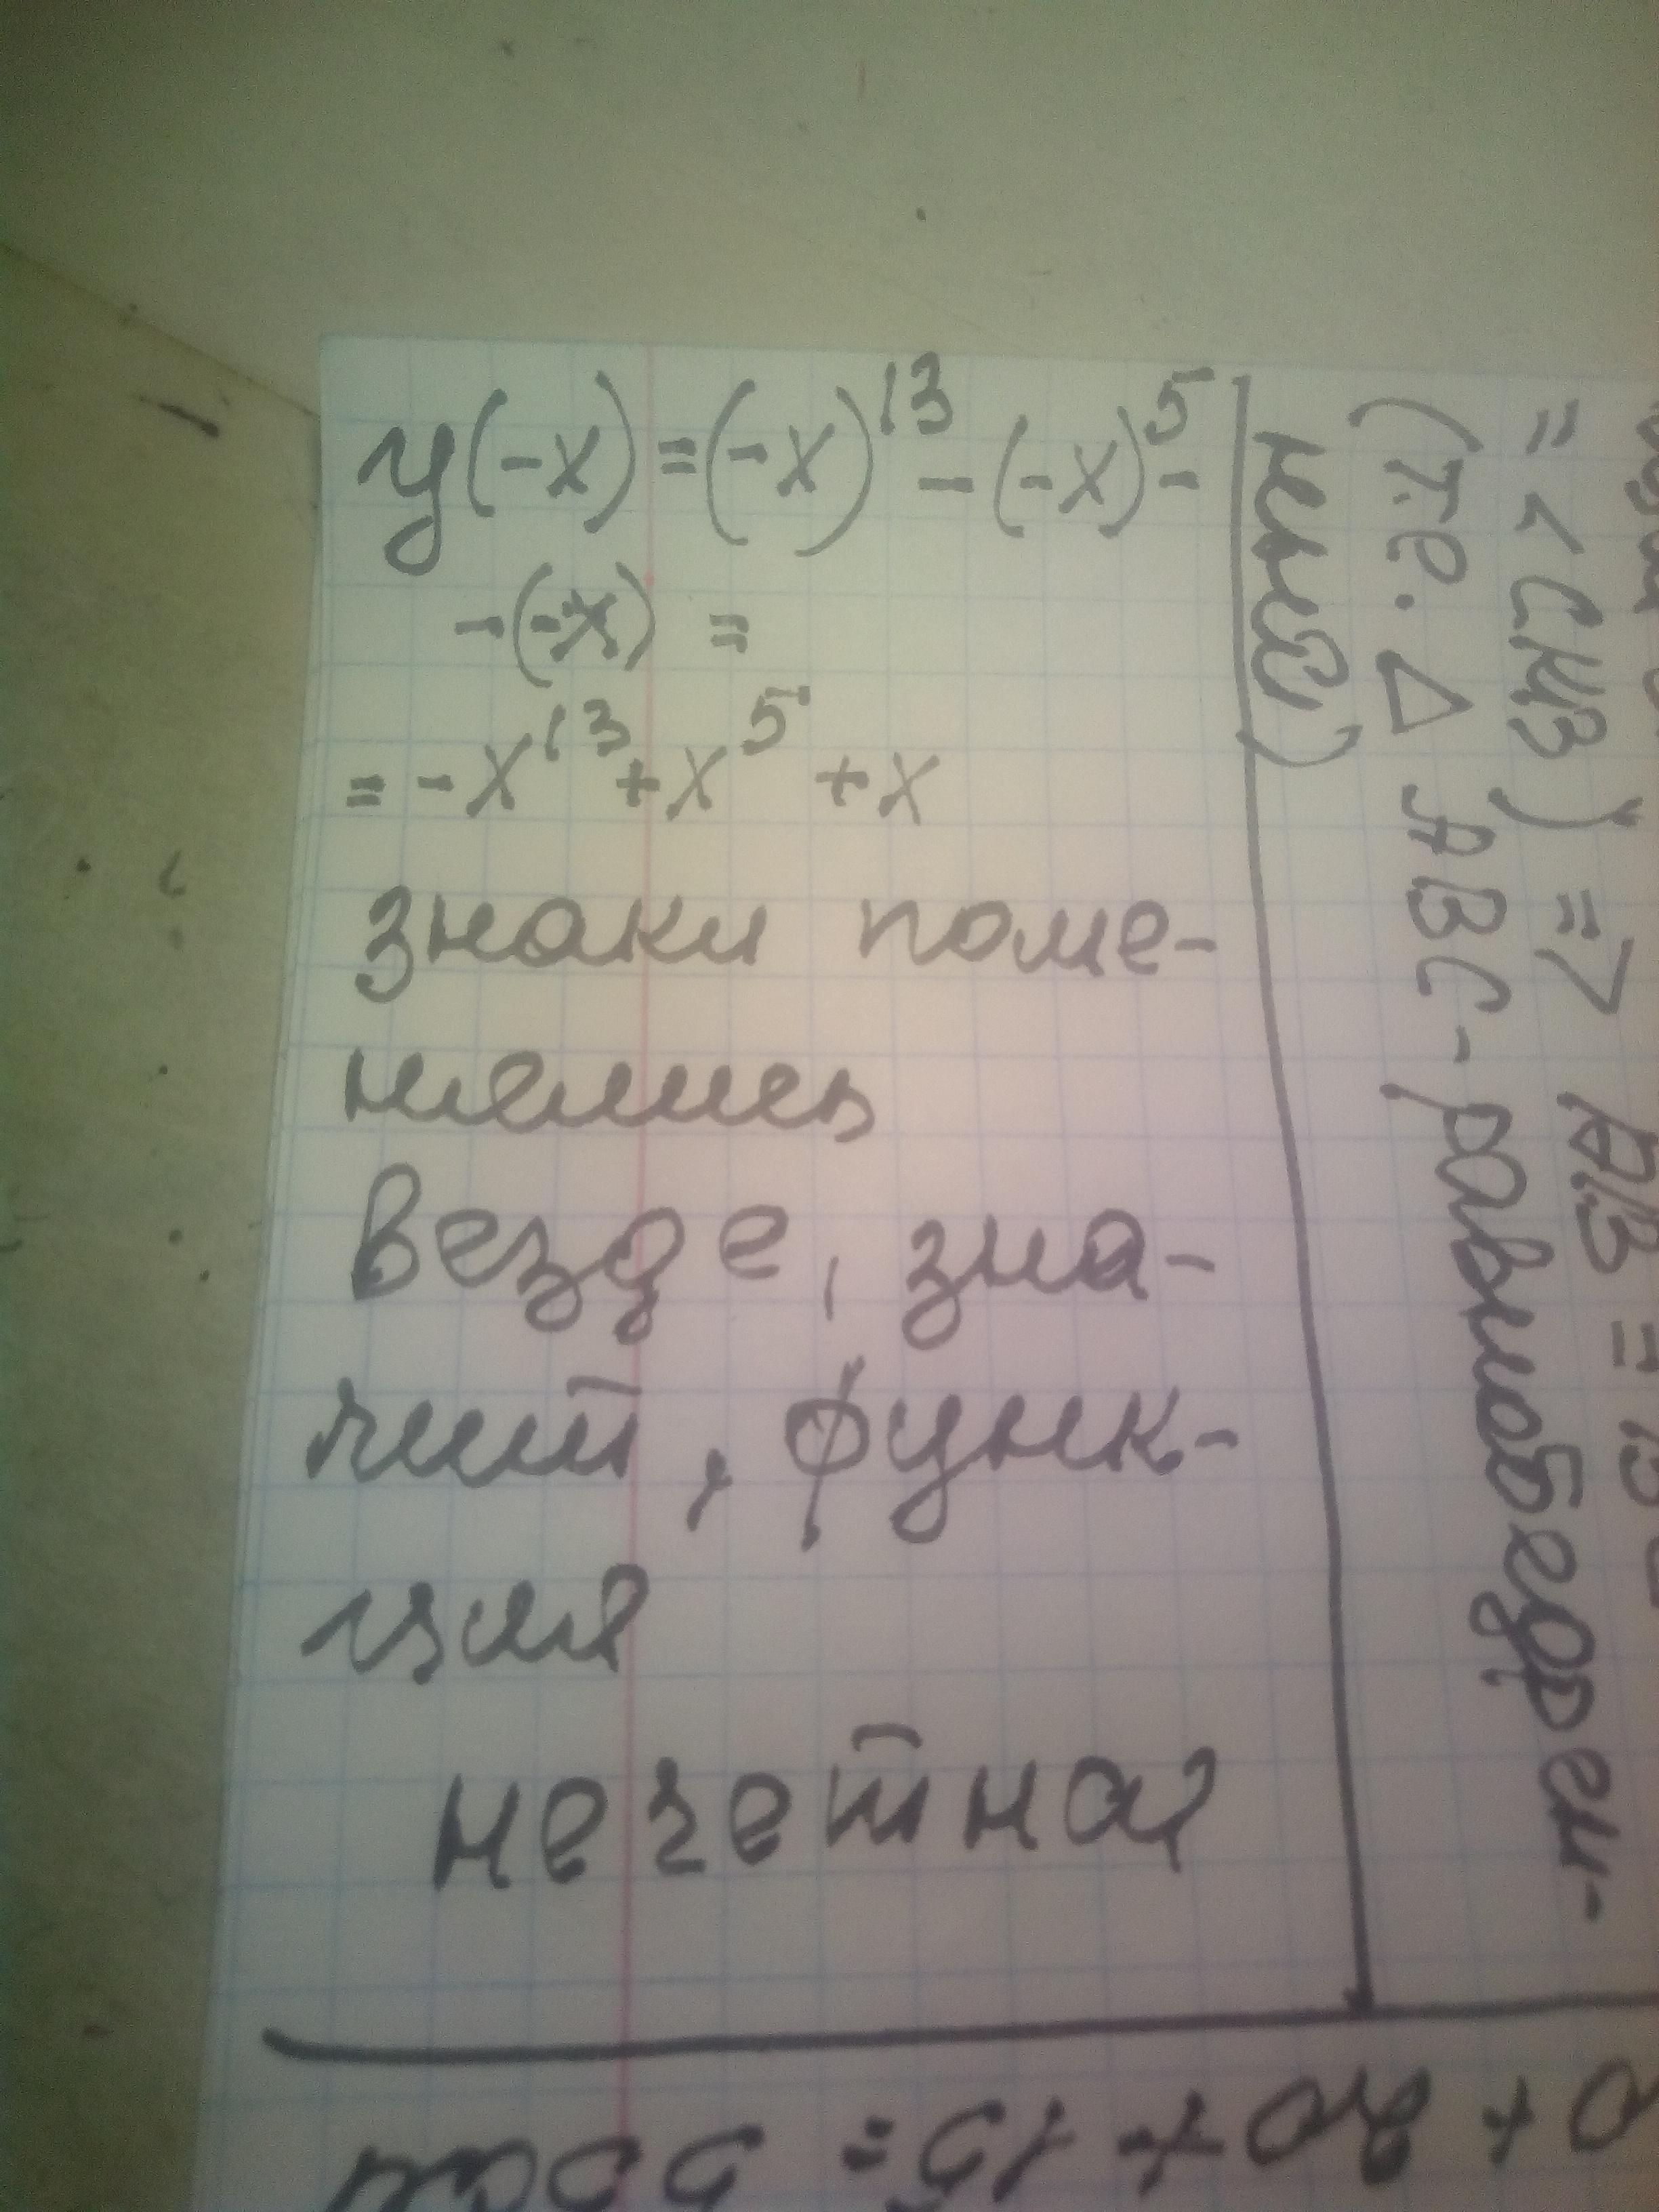 y(-x)=(-x)¹³-(-x)⁵-
-(-x) =
= -x¹³+x⁵ +x
знаки поме-
нялись
везде, зна-
чит, функ-
ция
нечетная
= < СКВ) => АВ = В
(т.е. △ АВС - равнобедрен-
ный)